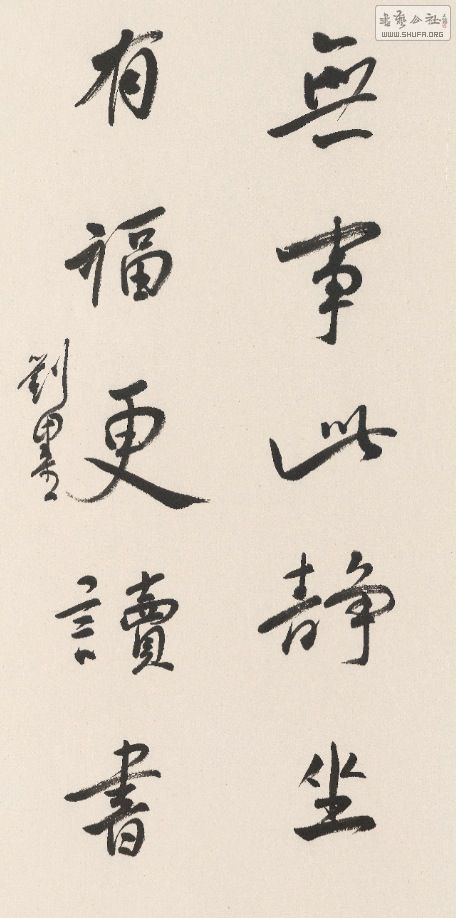 無事此静坐
有福更讀書
劉墨
書藝公社
WWW.SHUFA.ORG